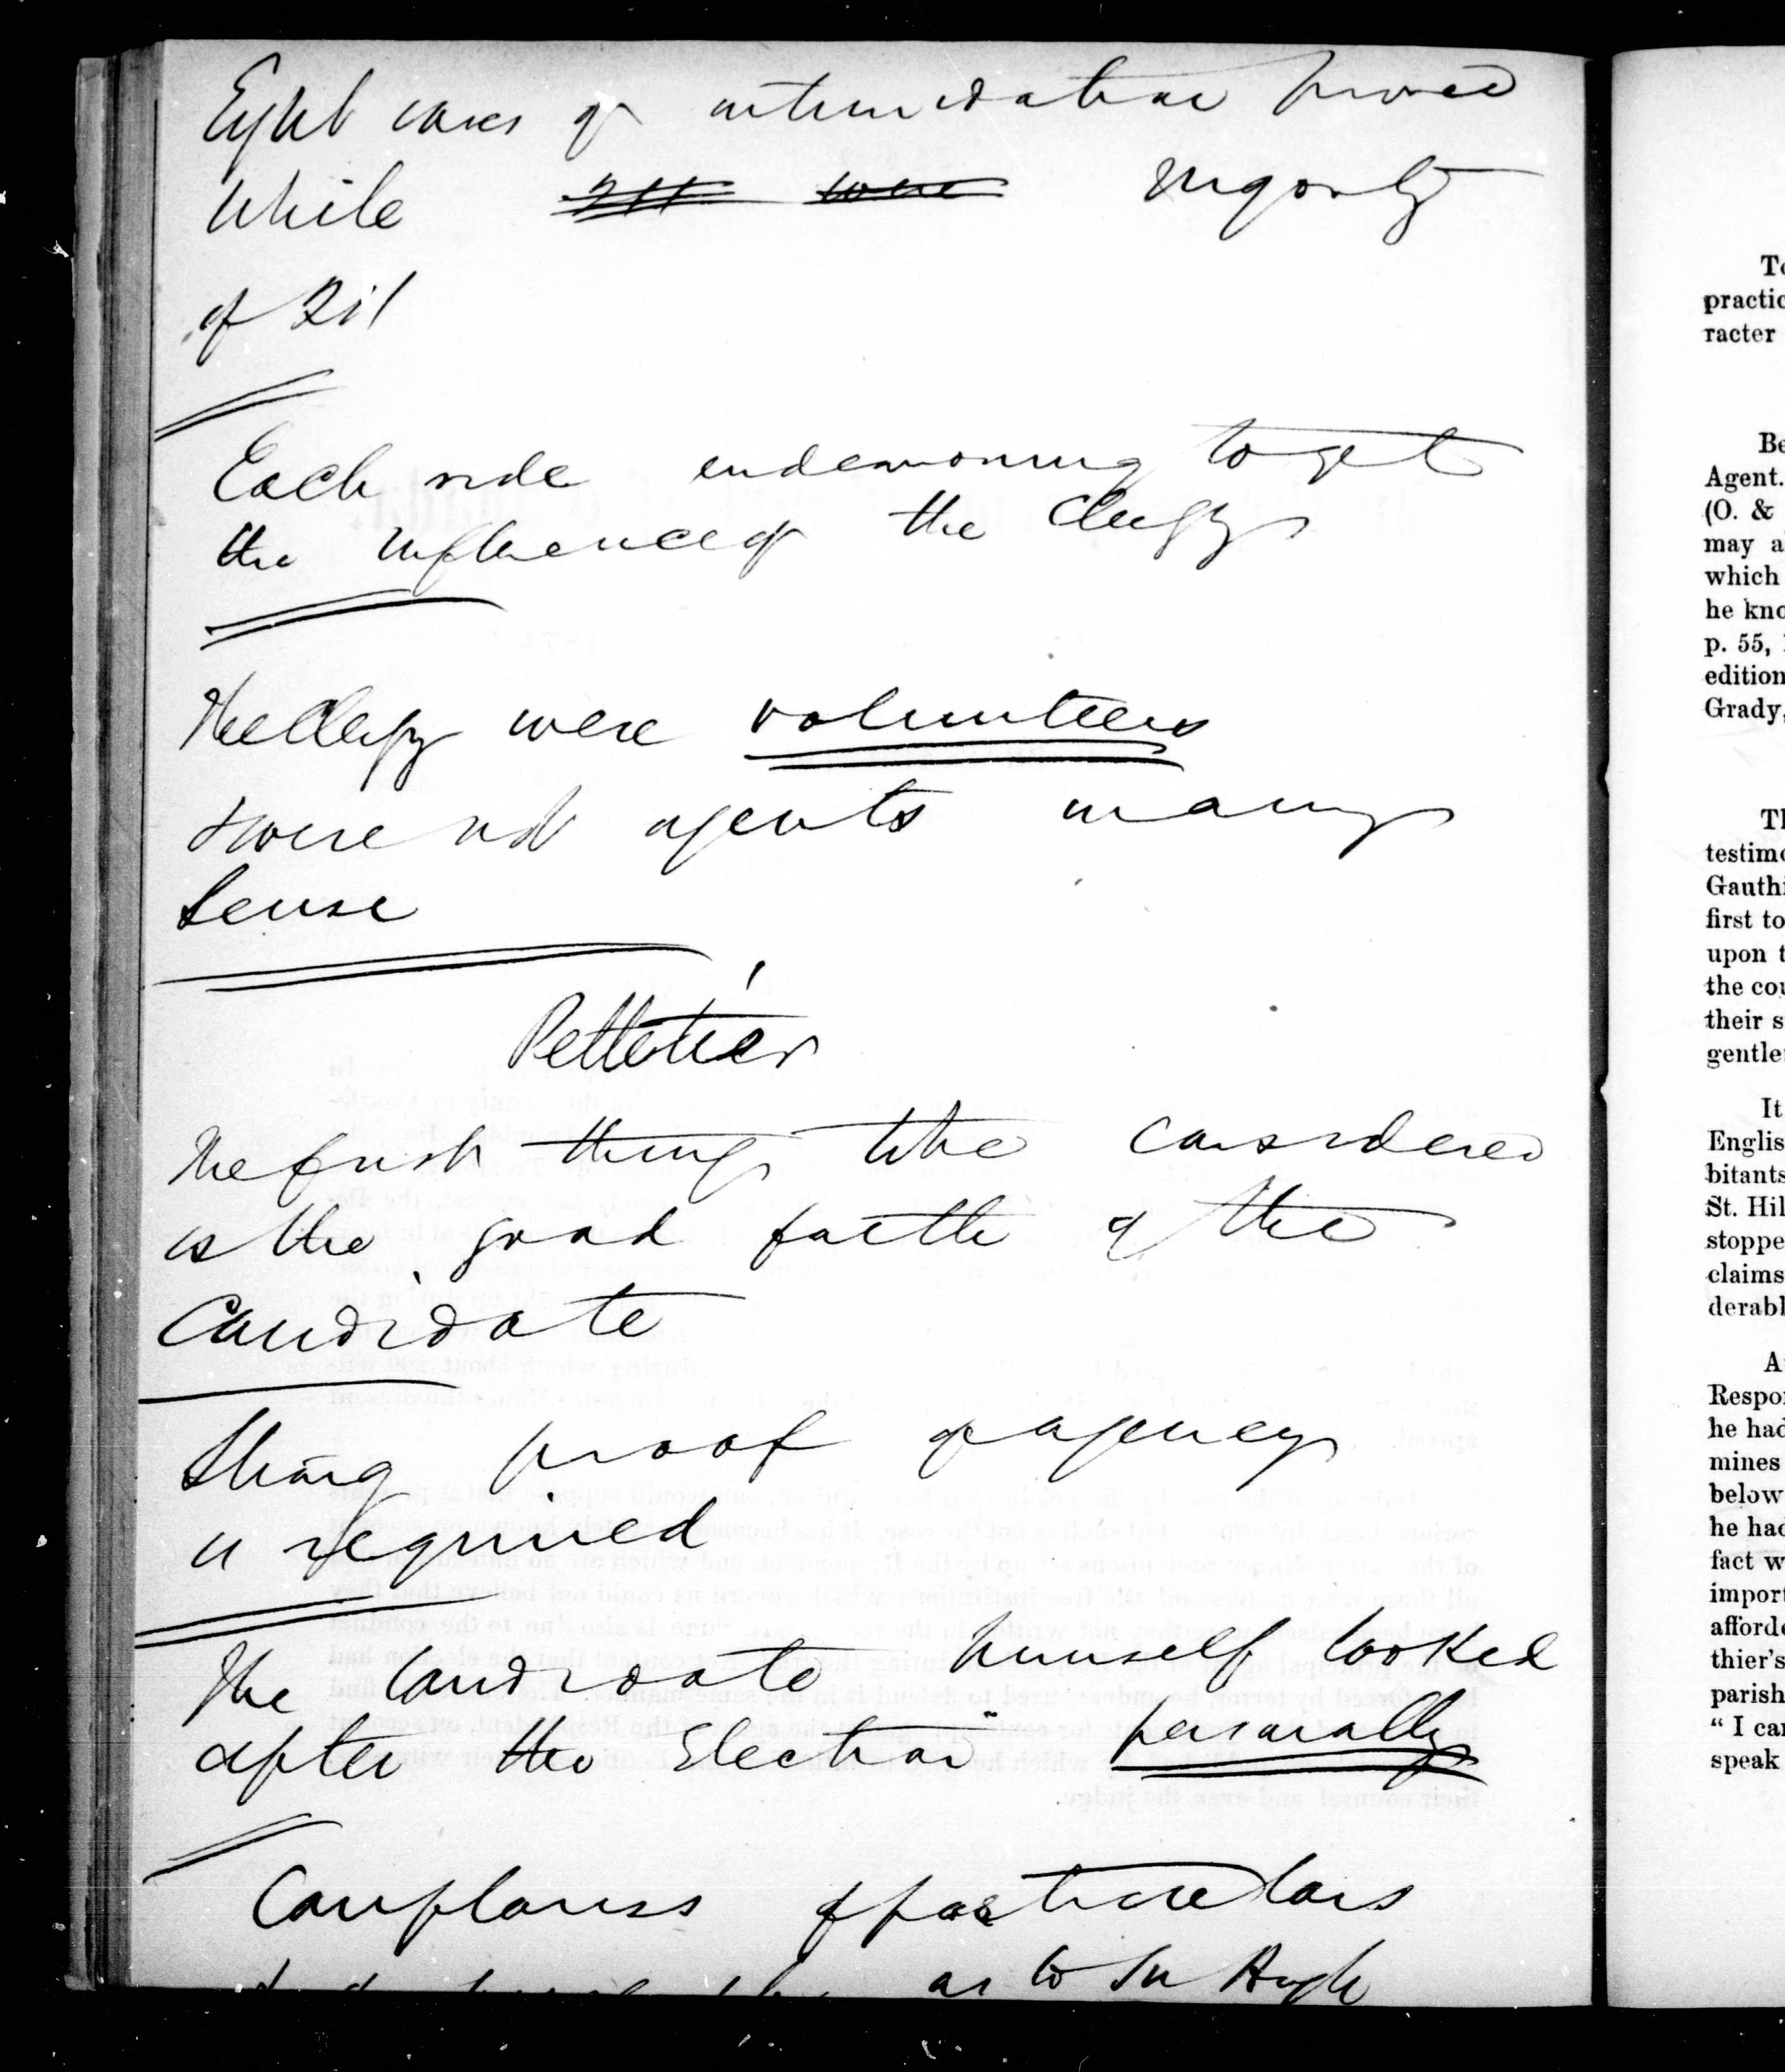 Eight cases of intimidation proved
while majority
of 211
Each side endeavouring to get
the influence of the Clergy
The Clergy were volunteers
& were not agents in any
sense
Pelletier
The first thing to be considered
is the good faith of the
Candidate
Strong proof of agency
is required
The Candidate himself looked
after the Election personally
Complains of particulars
as to Sir Hugh
To
practic
racter
Be
Agent.
(O. &
may a
which
he kno
p. 55,
edition
Grady,
Th
testimo
Gauthi
first to
upon t
the cou
their s
gentle
It
Englis
bitants
St. Hil
stoppe
claims
derabl
A
Respon
he had
mines
below
he had
fact w
import
afforde
thier's
parish
“ I can
speak